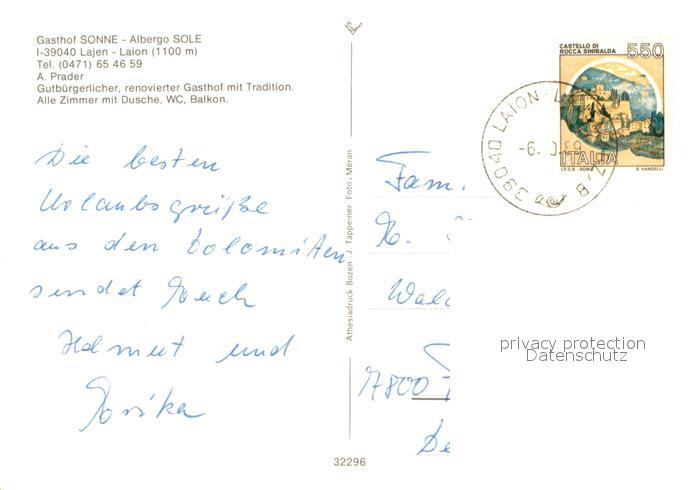 Gasthof SONNE - Albergo SOLE
I-39040 Lajen - Laion (1100 m)
Tel. (0471) 65 46 59
A. Prader
Gutbürgerlicher, renovierter Gasthof mit Tradition.
Alle Zimmer mit Dusche, WC, Balkon.
Die besten
Urlaubsgrüße
aus den Dolomiten
sendet Euch
Helmut und
Erika
Athesiadruck Bozen - J. Tappeiner Foto - Meran
32296
CASTELLO DI
ROCCA SINIBALDA
550
ITALIA
I.P.Z.S. - ROMA
E. VANGELLI
39040 LAION -
Fam.
Wal
7800
privacy protection
Datenschutz